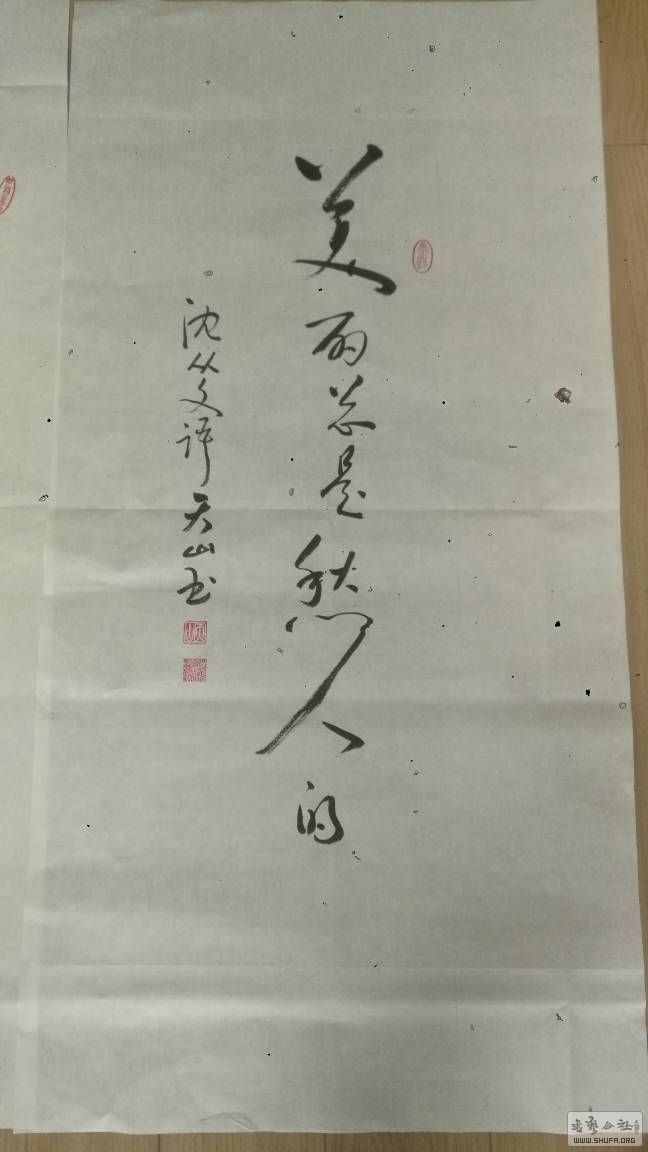 美丽总是愁人的
沈从文译 天山书
书艺公社
WWW.SHUFA.ORG